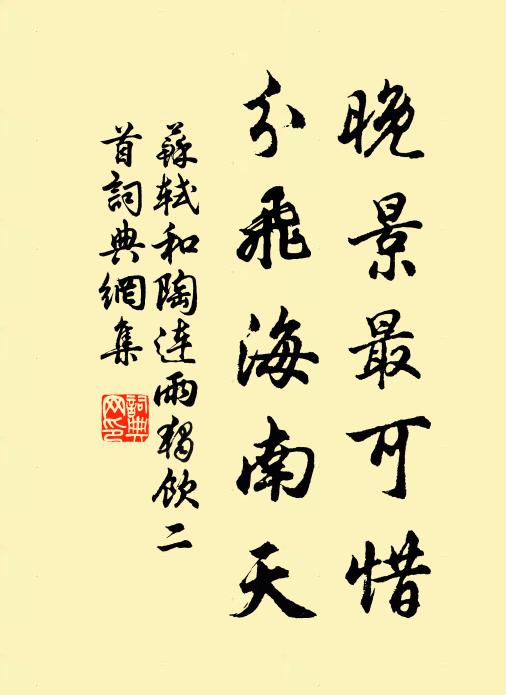 晚景最可惜
分飛海南天
蘇軾和陶連雨獨飲二
首詞典網集
詞典
网印